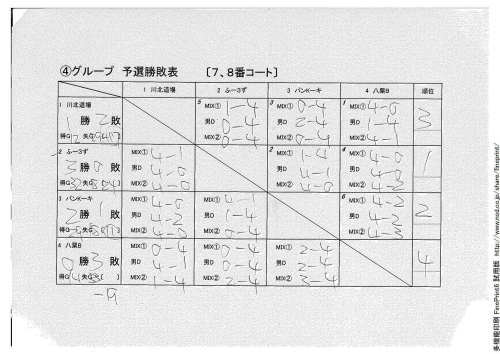 ④グループ 予選勝敗表 〔7、8番コート〕
1 川北道場 2 ふー3ず 3 パンKーキ 4 八葉B 順位
1 川北道場
1 勝 2 敗
得G 失G
5 MIX① 1-4
男D 0-4
MIX② 0-4
3 MIX① 0-4
男D 2-4
MIX② 0-4
1 MIX① 4-0
男D
MIX② 4-1
3
2 ふー3ず
3 勝 0 敗
得G 失G
MIX① 4-1
男D 4-0
MIX② 4-0
2 MIX① 1-4
男D 4-1
MIX② 4-0
4 MIX① 4-0
男D 4-0
MIX② 4-0
1
3 パンKーキ
2 勝 1 敗
得G 失G
MIX① 4-0
男D 4-2
MIX② 4-0
MIX①
男D 1-4
MIX② 0-4
6 MIX① 4-2
男D 4-2
MIX② 4-3
2
4 八葉B
0 勝 3 敗
得G 失G
MIX① 0-4
男D
MIX② 1-4
MIX① 0-4
男D 0-4
MIX② 0-4
MIX① 2-4
男D 2-4
MIX② 3-4
4
-9
多機能印刷 FinePrint6 試用版 http://www.nsd.co.jp/share/fineprint/